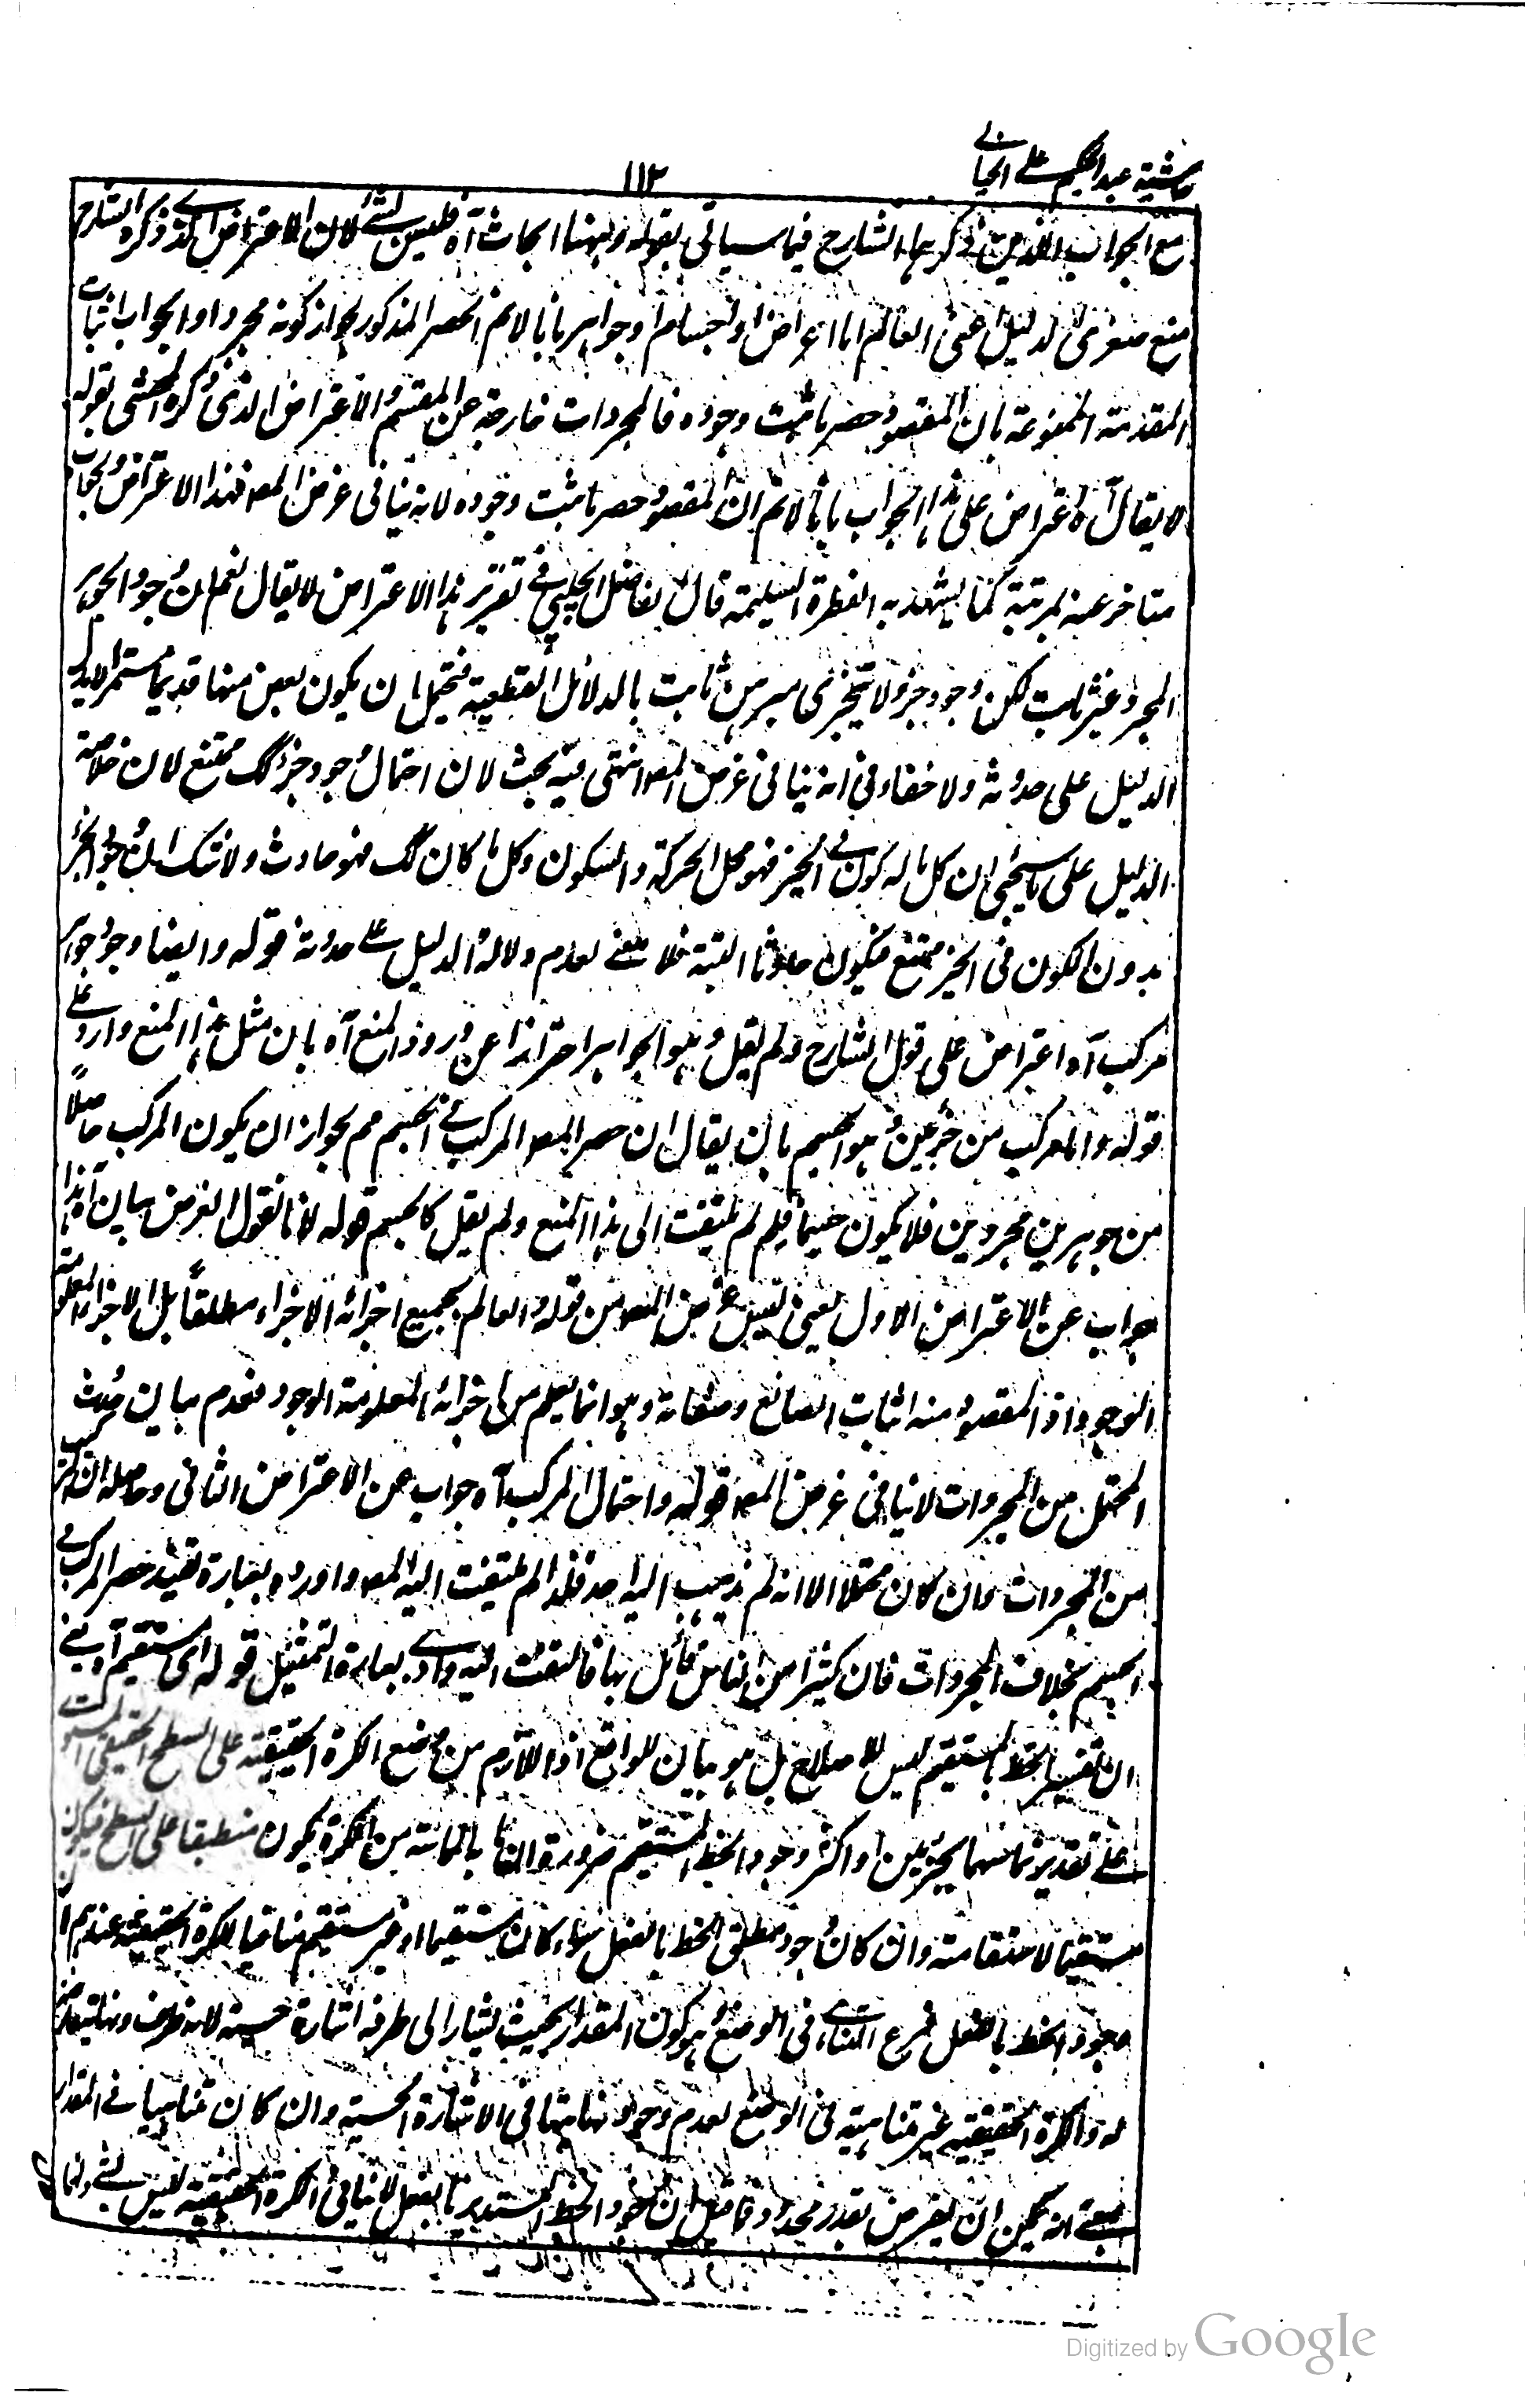 حاشية عبدالحكيم على الخيالي
١١٢
مع الجوابين اللذين ذكرهما الشارح فيما سيأتي بقوله وههنا ابحاث آه فليس بشئ لان الاعتراض الذي ذكره الشارح
منع صغرى لدليل اعنى العالم اما اعراض او اجسام او جواهر بانا لانم الحصر المذكور لجواز كونه مجردا والجواب اثبات
المقدمة الممنوعة بان المقصود حصر ما ثبت وجوده فالمجردات خارجة عن المقسم والاعتراض الذى ذكره المحشى بقوله
لا يقال آه اعتراض على هذا الجواب بانا لانم ان المقصود حصر ما ثبت وجوده لانه ينافى غرض المصـ فهذا الاعتراض والجواب
متاخر عنه بمرتبة كما يشهد به الفطرة السليمة قال الفاضل الچلپي في تقرير هذا الاعتراض لا يقال نعم ان وجود الجوهر
المجرد غير ثابت لكن وجود جزء لا يتجزى مبرهن ثابت بالدلائل القطعية فيحتمل ان يكون بعض منها قديما مستمرا لا يدل
الدليل على حدوثه ولا خفاء في انه ينافى غرض المصـ انتهى فيه بحث لان احتمال وجود جزء كك ممتنع لان خلاصة
الدليل على ما سيجئ ان كل ما له كون في الحيز فهو محل الحركة والسكون وكل ما كان كك فهو حادث ولا شك ان وجود الجزء
بدون الكون فى الحيز ممتنع فيكون حادثا البتة فلا معنى لعدم دلالة الدليل على حدوثه قوله وايضا وجود جواهر
مركب آه اعتراض على قول الشارح ولم يقل وهو الجواهر احترازا عن ورود المنع آه بان مثل هذا المنع وارد على
قوله واما مركب من جزئين وهو الجسم بان يقال ان حصر المصـ المركب في الجسم مم لجواز ان يكون المركب حاصلا
من جوهرين مجردين فلا يكون جسما فلم لم يلتفت الى هذا المنع ولم يقل كالجسم قوله لانا نقول الغرض بيان آه هذا
جواب عن الاعتراض الاول يعنى ليس غرض المصـ من قوله والعالم بجميع اجزائه الاجزاء مطلقا بل الاجزاء المعلومة
الوجود اذ المقصود منه اثبات الصانع وصفاته وهو انما يعلم من اجزائه المعلومة الوجود فعدم بيان حدوث
المحتمل من المجردات لا ينافى غرض المصـ قوله واحتمال المركب آه جواب عن الاعتراض الثانى وحاصله ان المركب
من المجردات وان كان محتملا الا انه لم يذهب اليه احد فلذا لم يلتفت اليه المصـ واورده بعبارة تفيد حصر المركب في
الجسم بخلاف المجردات فان كثيرا من الناس قائل بها فالتفت اليه واورد بعبارة التمثيل قوله اى مستقيم آه يعنى
ان تفسير الخط بالمستقيم ليس للاصلاح بل هو بيان للواقع اذ اللازم من وضع الكرة الحقيقية على السطح الحقيقي المستوى
على تقدير تماسهما بجزئين او اكثر وجود الخط المستقيم ضرورة ان ما به المماسة من الكرة يكون منطبقا على السطح فيكون
مستقيما لاستقامته وان كان وجود مطلق الخط بالفعل سواء كان مستقيما او غير مستقيم منافيا للكرة الحقيقية عندهم
وجود الخط بالفعل فرع التناهي فى الوضع وهو كون المقدار بحيث يشار الى طرفه اشارة حسية لانه طرف ونهاية
له والكرة الحقيقية غير متناهية فى الوضع لعدم وجود نهايتها فى الاشارة الحسية وان كان متناهيا في المقدار
بمعنى انه يمكن ان يفرض بقدر محدود فما قيل ان وجود الخط المستدير بالفعل لا ينافى الكرة الحقيقية ليس بشئ وانما
Digitized by Google